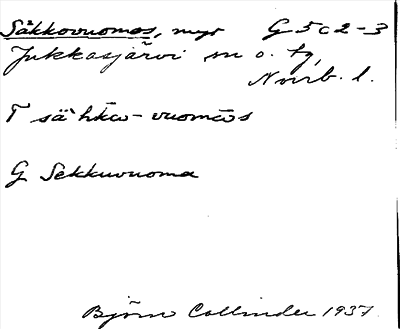 Säkkovuomos, myr G 5 c 2-3
Jukkasjärvi sn o. tg,
Norrb. l.
T sä`hkω-vuomω̄s
G Sekkuvuoma
Björn Collinder 1937.